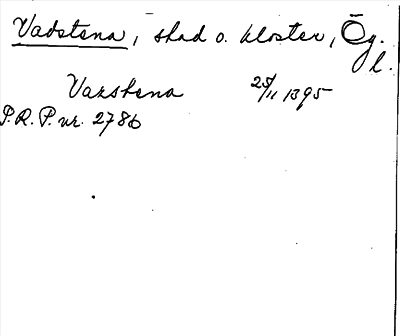 Vadstena, stad o. kloster, Ög.
l.
Vazstena 25/11 1395
P.R.P. nr. 2786